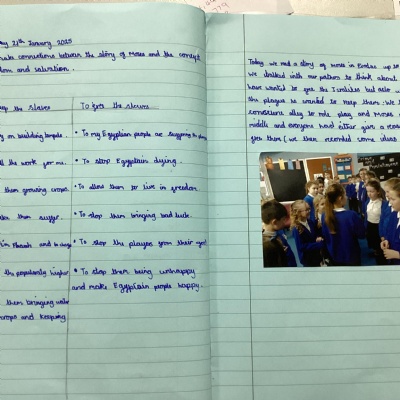 ay 21th January 2025
make connections between the story of Moses and the concept
dom and salvation.
eep the slaves
To free the slaves
on building temples.
• To my Egyptian people are suffering the plagues
ll the work for me.
• To stop Egyptian dying.
them growing crops.
• To allow them to live in freedom.
them suffer.
• To stop them bringing bad luck.
I'm Pharaoh and in charge
• To stop the plagues from their god
the popularity higher
• To stop them being unhappy
and make Egyptian people happy.
them bringing water
crops and keeping
Today, we read a story of moses in Exodus up to
we worked with our partners to think about
have wanted to free the Israelites but also w
the plagues he wanted to keep them. We
conscience alley to role play, and Moses
middle and everyone had either give a reaso
free them (we then recorded some ideas